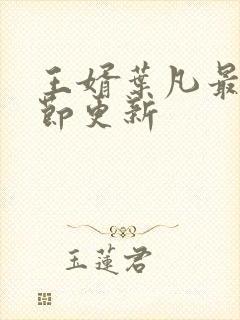 王婿葉凡最
節更新
玉蓮君